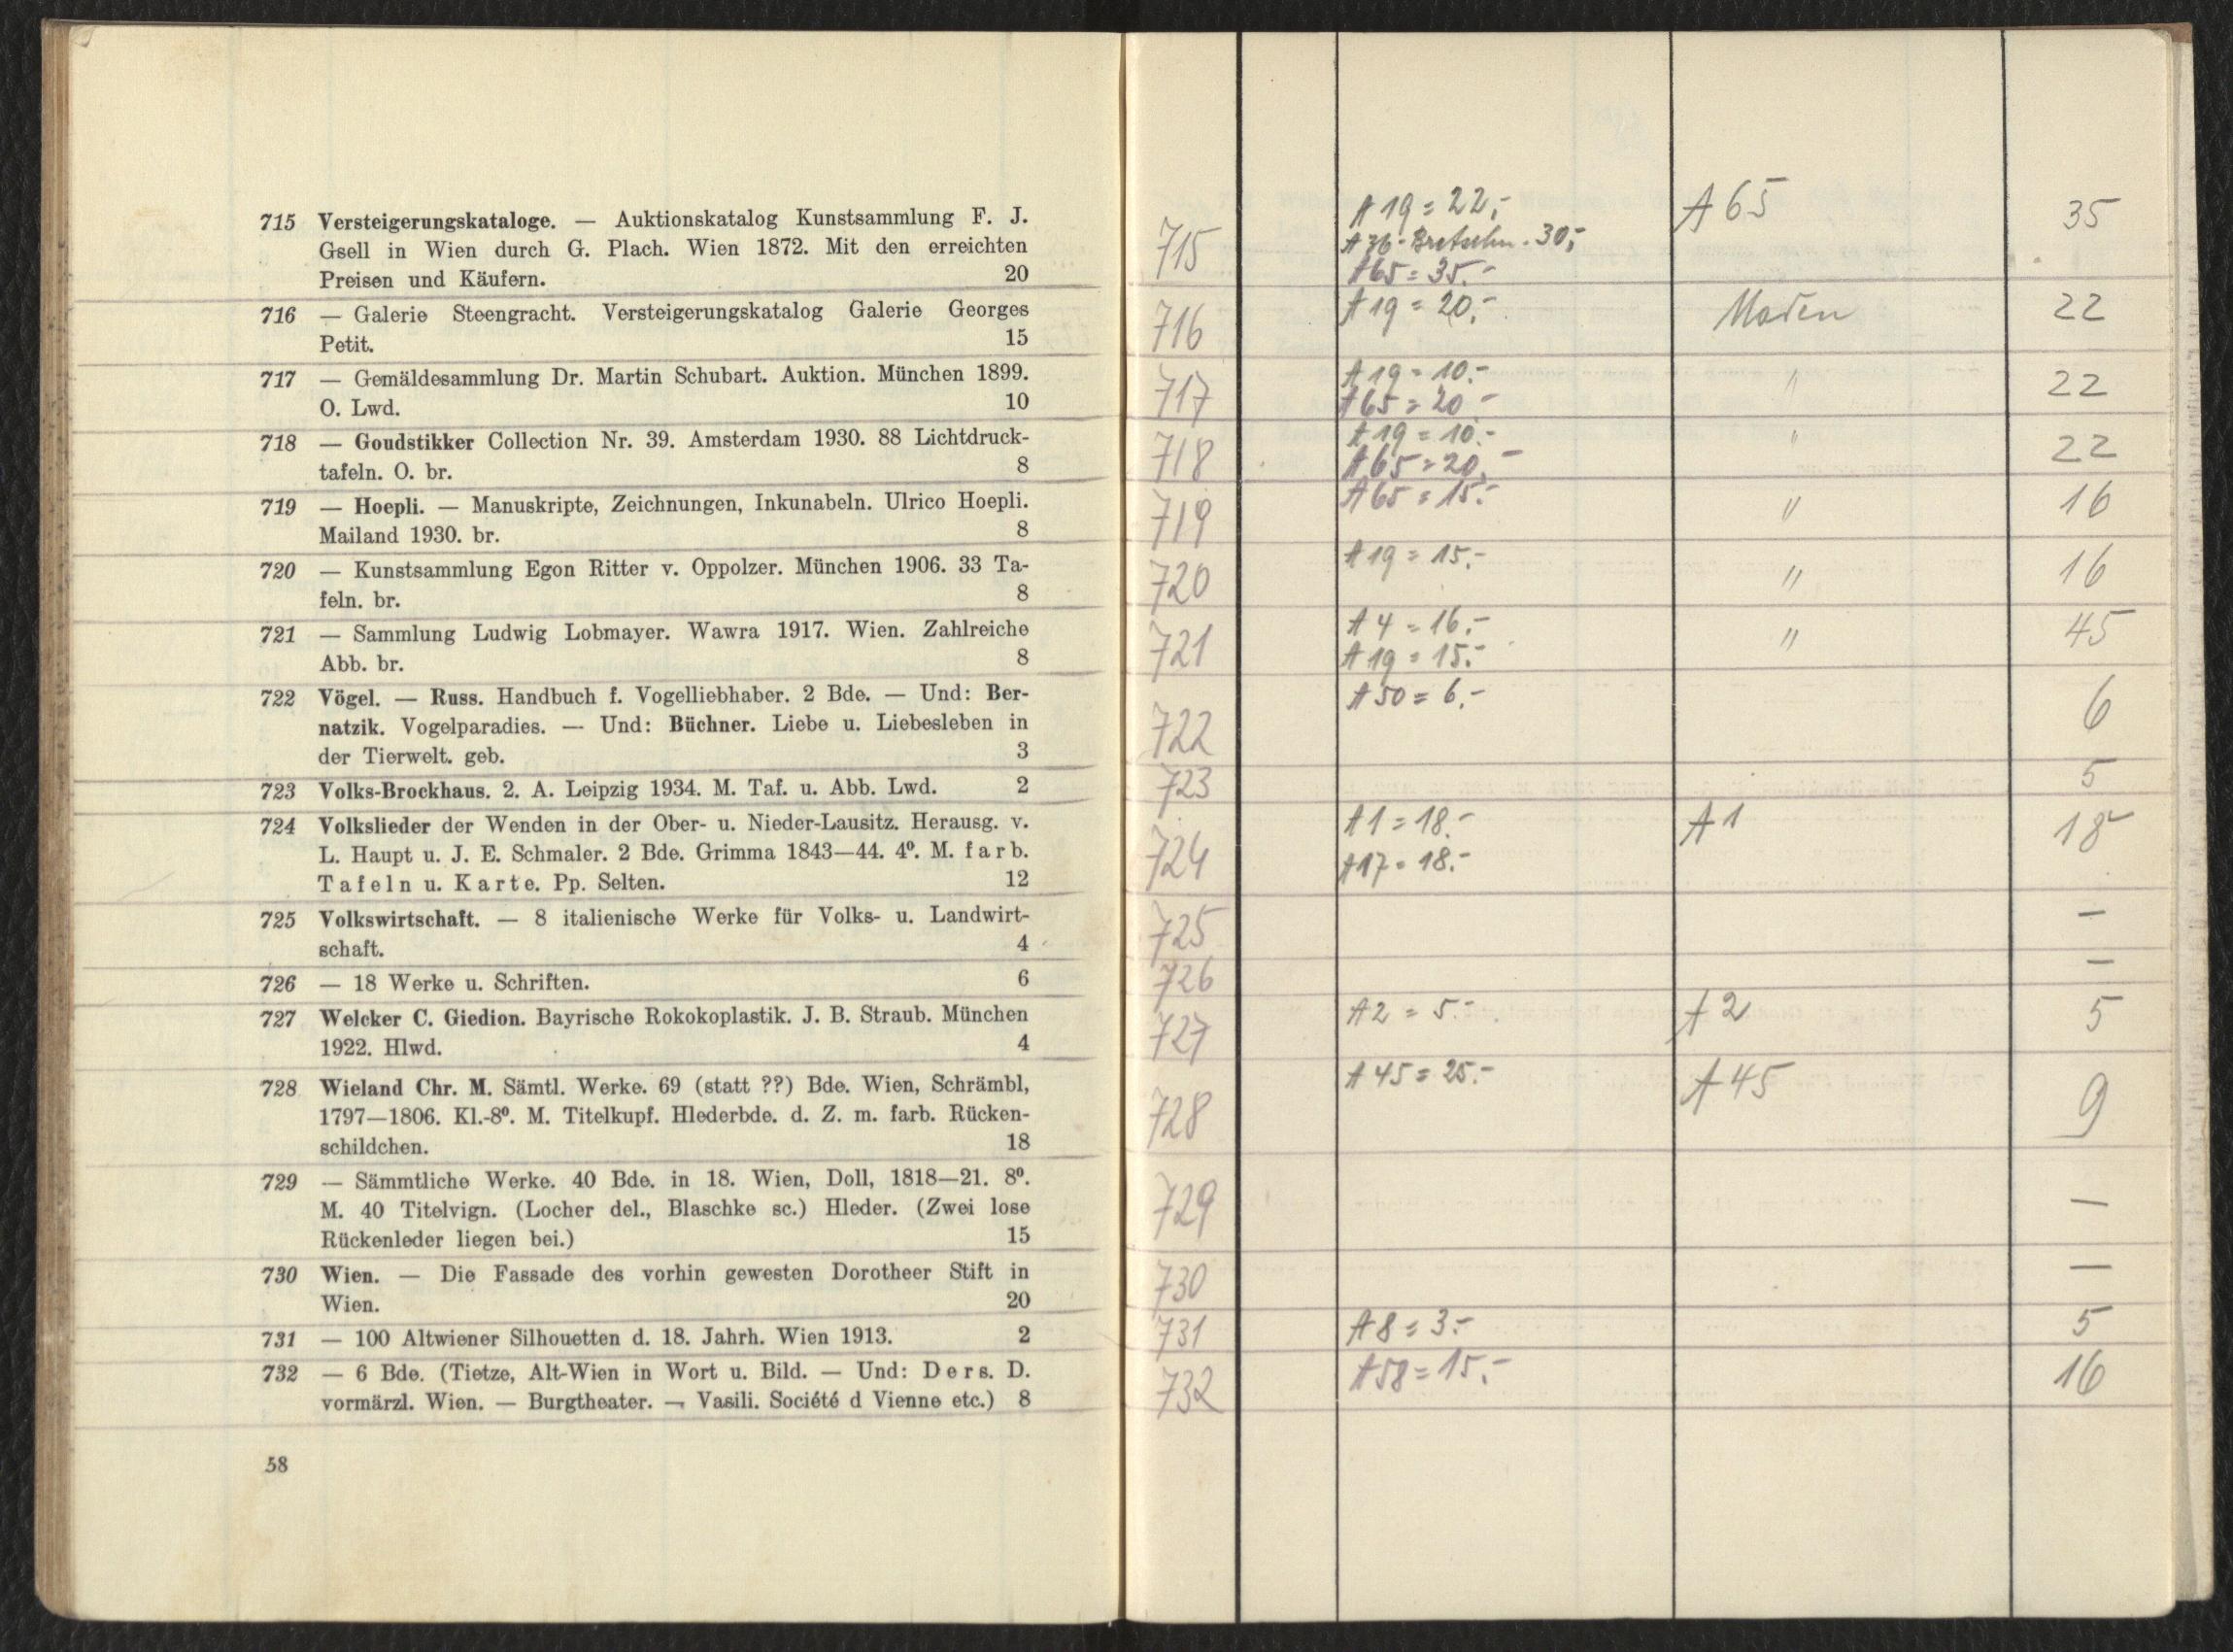 715 Versteigerungskataloge. — Auktionskatalog Kunstsammlung F. J.
Gsell in Wien durch G. Plach. Wien 1872. Mit den erreichten
Preisen und Käufern. 20
716 — Galerie Steengracht. Versteigerungskatalog Galerie Georges
Petit. 15
717 — Gemäldesammlung Dr. Martin Schubart. Auktion. München 1899.
O. Lwd. 10
718 — Goudstikker Collection Nr. 39. Amsterdam 1930. 88 Lichtdruck-
tafeln. O. br. 8
719 — Hoepli. — Manuskripte, Zeichnungen, Inkunabeln. Ulrico Hoepli.
Mailand 1930. br. 8
720 — Kunstsammlung Egon Ritter v. Oppolzer. München 1906. 33 Ta-
feln. br. 8
721 — Sammlung Ludwig Lobmayer. Wawra 1917. Wien. Zahlreiche
Abb. br. 8
722 Vögel. — Russ. Handbuch f. Vogelliebhaber. 2 Bde. — Und: Ber-
natzik. Vogelparadies. — Und: Büchner. Liebe u. Liebesleben in
der Tierwelt. geb. 3
723 Volks-Brockhaus. 2. A. Leipzig 1934. M. Taf. u. Abb. Lwd. 2
724 Volkslieder der Wenden in der Ober- u. Nieder-Lausitz. Herausg. v.
L. Haupt u. J. E. Schmaler. 2 Bde. Grimma 1843—44. 4⁰. M. farb.
Tafeln u. Karte. Pp. Selten. 12
725 Volkswirtschaft. — 8 italienische Werke für Volks- u. Landwirt-
schaft. 4
726 — 18 Werke u. Schriften. 6
727 Welcker C. Giedion. Bayrische Rokokoplastik. J. B. Straub. München
1922. Hlwd. 4
728 Wieland Chr. M. Sämtl. Werke. 69 (statt ??) Bde. Wien, Schrämbl,
1797—1806. Kl.-8⁰. M. Titelkupf. Hlederbde. d. Z. m. farb. Rücken-
schildchen. 18
729 — Sämmtliche Werke. 40 Bde. in 18. Wien, Doll, 1818—21. 8⁰.
M. 40 Titelvign. (Locher del., Blaschke sc.) Hleder. (Zwei lose
Rückenleder liegen bei.) 15
730 Wien. — Die Fassade des vorhin gewesten Dorotheer Stift in
Wien. 20
731 — 100 Altwiener Silhouetten d. 18. Jahrh. Wien 1913. 2
732 — 6 Bde. (Tietze, Alt-Wien in Wort u. Bild. — Und: Ders. D.
vormärzl. Wien. — Burgtheater. — Vasili. Société d Vienne etc.) 8
58
715 A 19 = 22,- A 65 35
A 36 - - 30,-
A 65 = 35.-
716 A 19 = 20,- 22
717 A 19 = 10.- " 22
A 65 = 20.-
718 A 19 = 10.- " 22
A 65 = 20,-
719 A 65 = 15.- " 16
720 A 19 = 15.- " 16
721 A 4 = 16.- " 45
A 19 = 15.-
722 A 50 = 6.- 6
723 5
724 A 1 = 18.- A 1 18
A 17 = 18.-
725 —
726 —
727 A 2 = 5.- A 2 5
728 A 45 = 25.- A 45 9
729 —
730 —
731 A 8 = 3.- 5
732 A 58 = 15.- 16